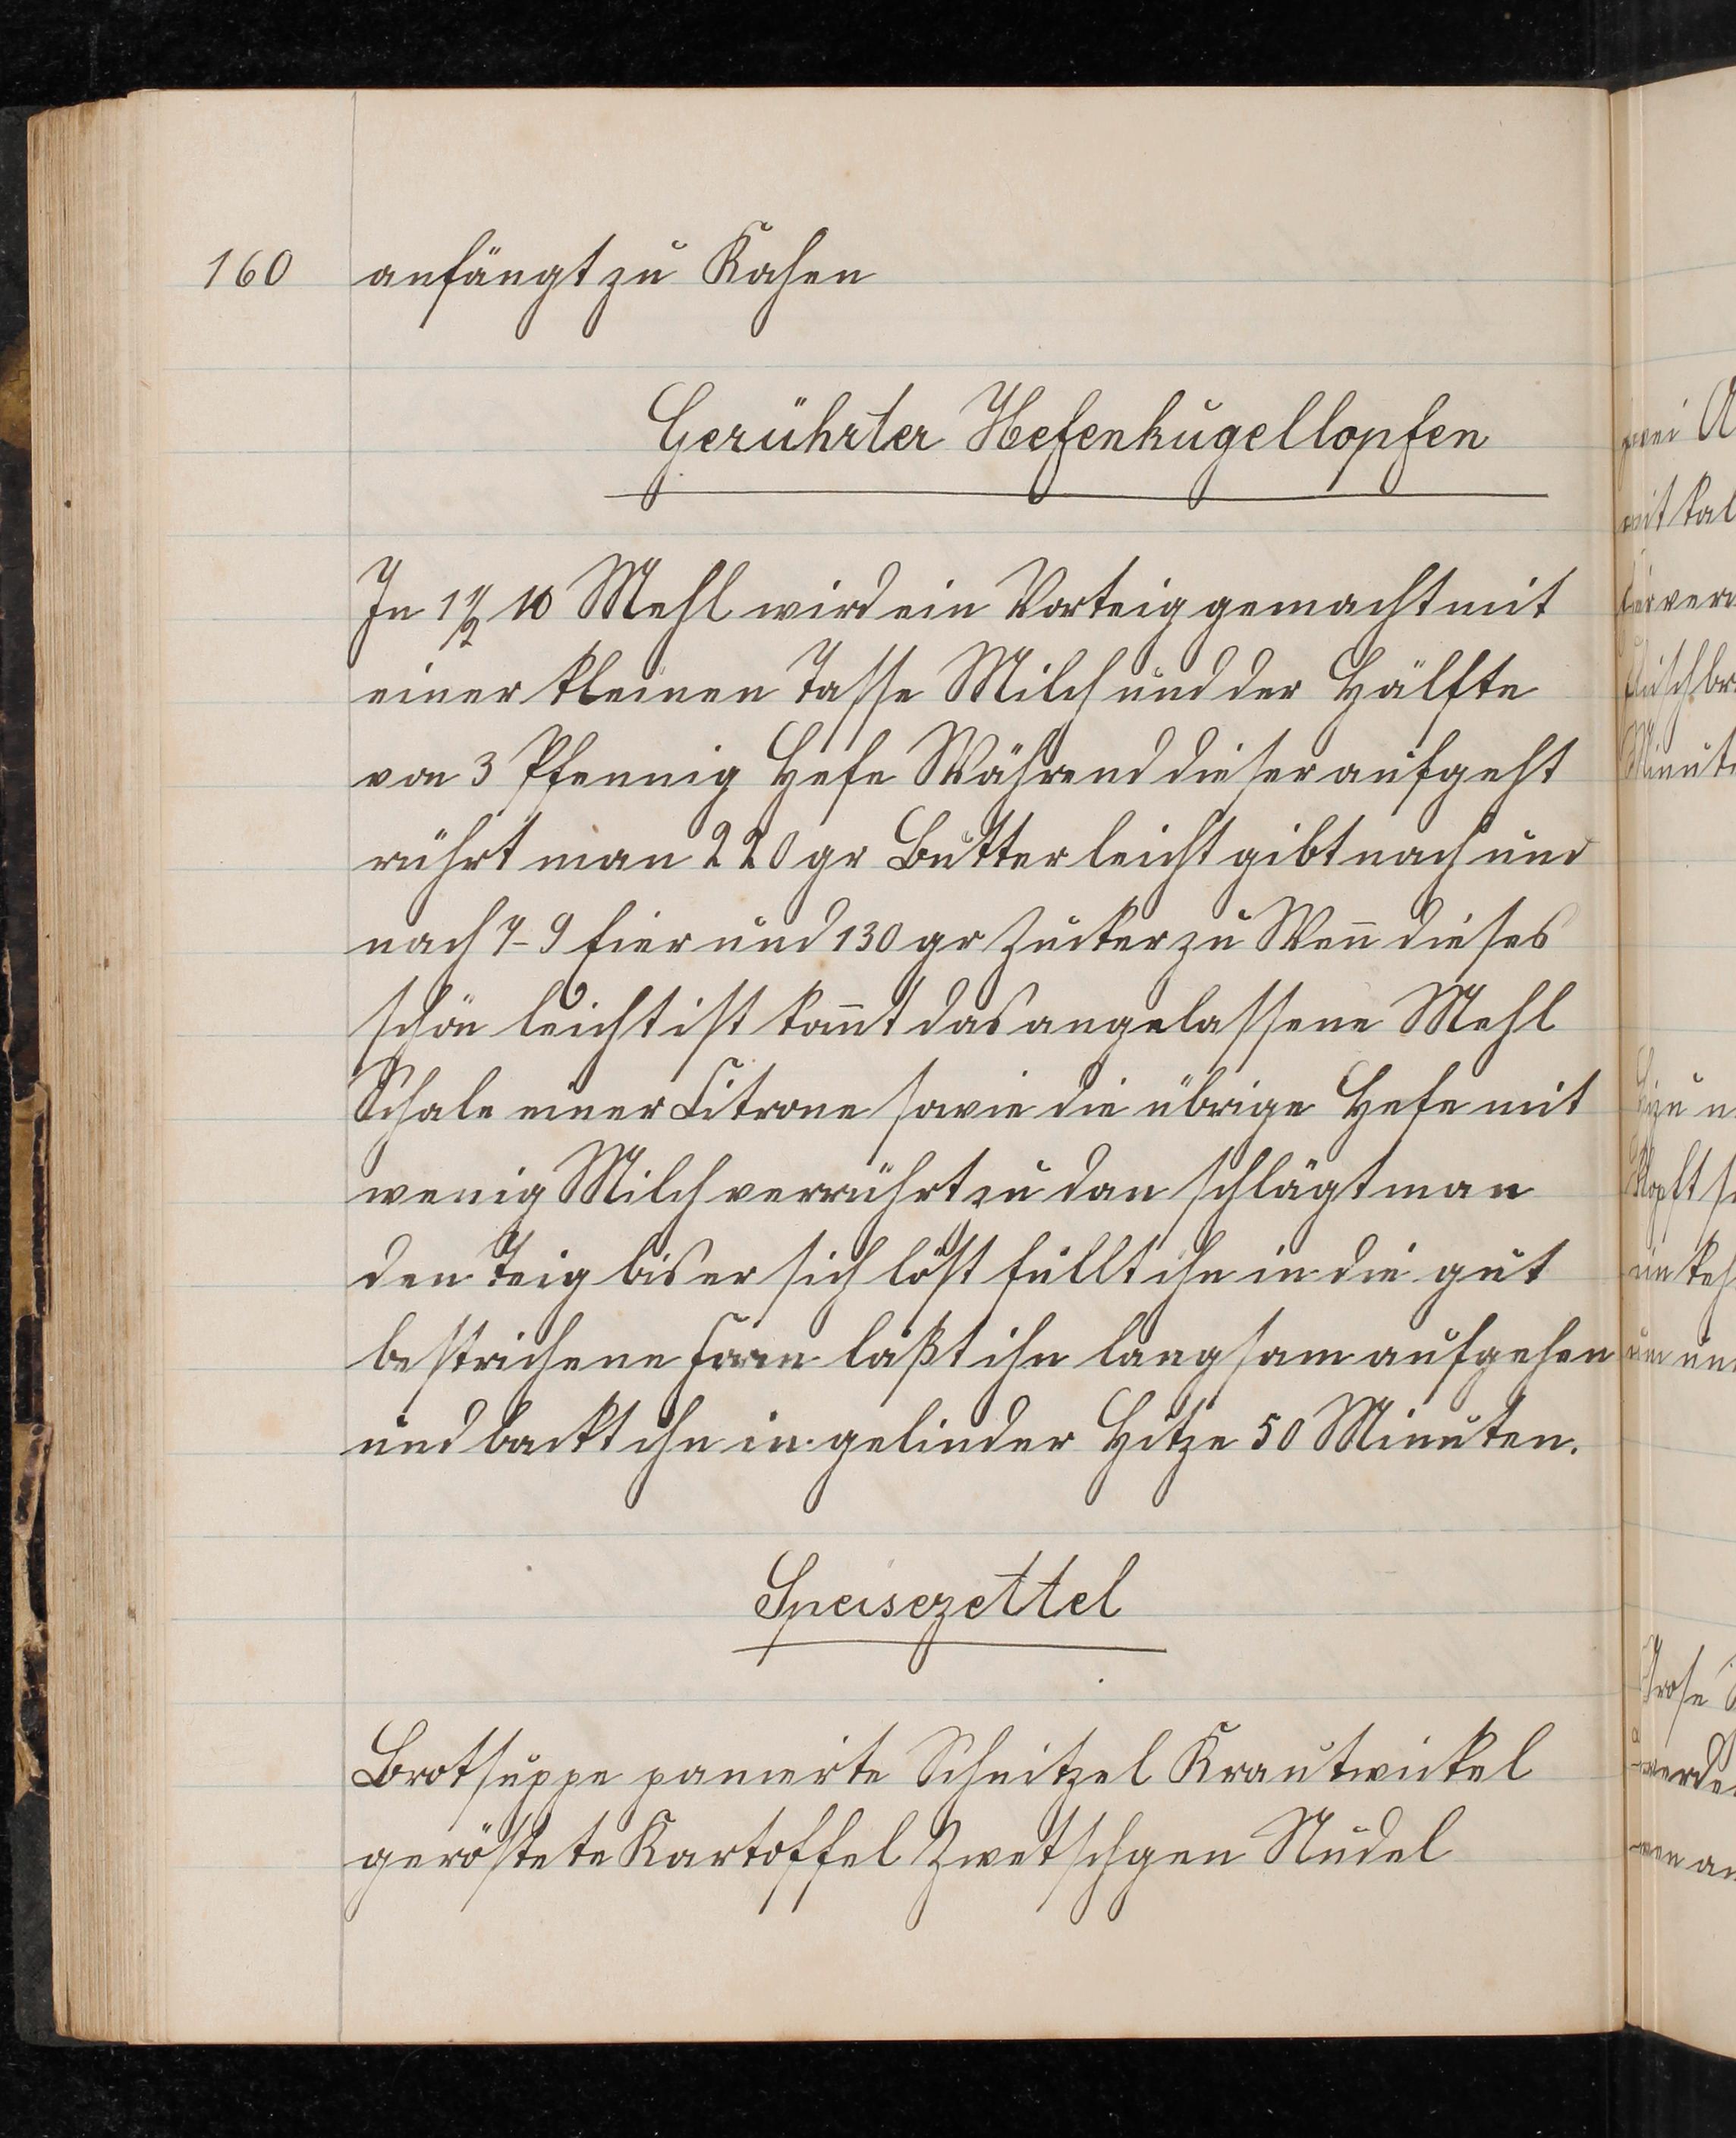 160 anfängt zu Kochen
Gerührter Hefenkugellopfen
In 1 1/2 ℔ Mehl wird ein Vorteig gemacht mit
einer kleinen Tasse Milch und der Hälfte
von 3 Pfennig Hefe Während dieser aufgeht
rührt man 220 gr Butter leicht gibt nach und
nach 7-9 Eier und 130 gr Zucker zu Wen̄ dieses
schön leicht ist kom̄t das angelassene Mehl
Schale einer Citrone sowie die übrige Hefe mit
wenig Milch verrührt zu dan schlägt man
den Teig bis er sich löst füllt ihn in die gut
bestrichene Form läßt ihn langsam aufgehen
und backt ihn in gelinder Hitze 50 Minuten.
Speisezettel
Brotsuppe panierte Schnitzel Krautwickel
geröstete Kartoffel Zwetschgen Nudel